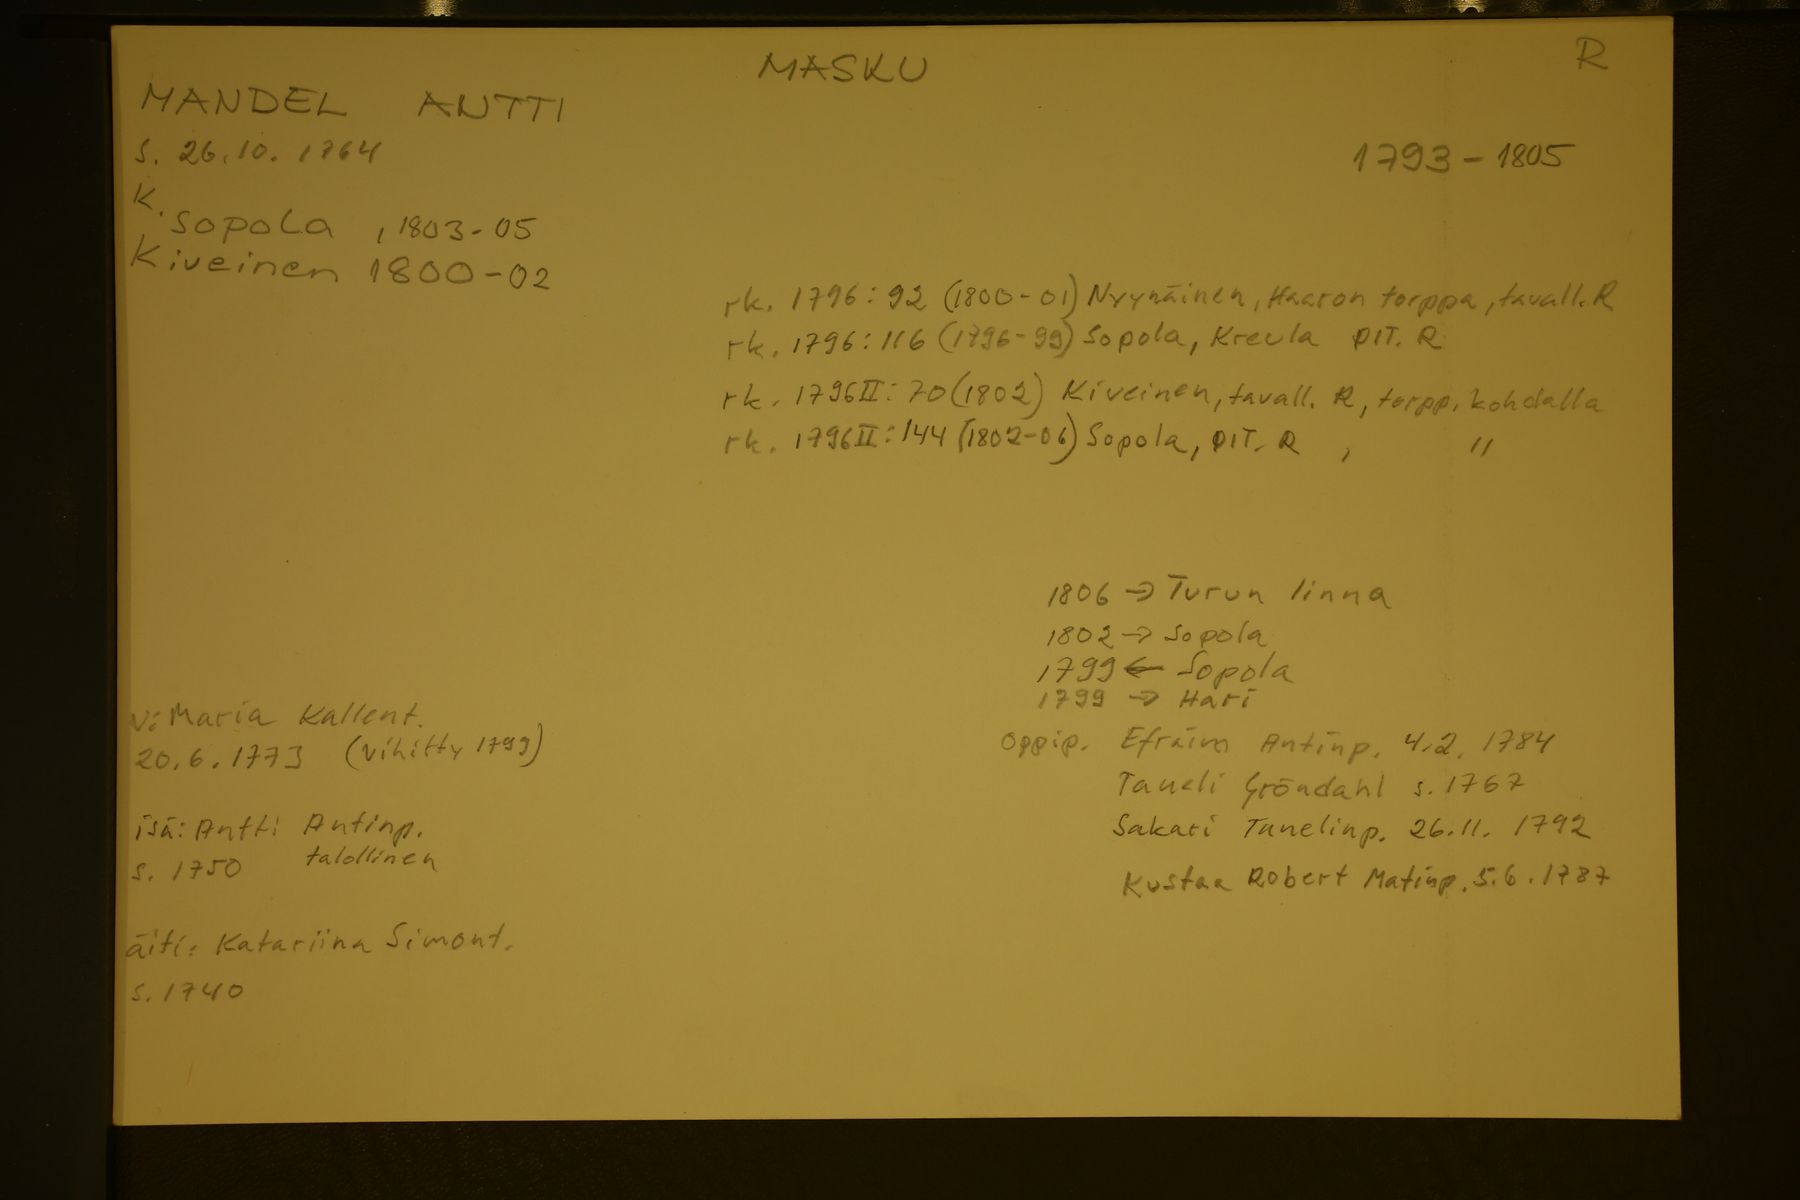 MASKU
R
MANDEL ANTTI
s. 26.10. 1764
1793 - 1805
K.
Sopola , 1803-05
Kiveinen 1800-02
rk. 1796: 92 (1800-01) Nyynäinen, Haaron torppa, tavall. R
rk. 1796: 116 (1796-99) Sopola, Kreula PIT. R
rk. 1796 II: 70 (1802) Kiveinen, tavall. R, torpp. kohdalla
rk. 1796 II: 144 (1802-06) Sopola, PIT. R , "
1806 → Turun linna
1802 → Sopola
1799 ← Sopola
1799 → Hari
v: Maria Kallent.
20.6.1773 (vihitty 1799)
oppip. Efraim Antinp. 4.2. 1784
Taneli Gröndahl s. 1767
Sakari Tanelinp. 26.11. 1792
Kustaa Robert Matinp. 5.6.1787
isä: Antti Antinp.
s. 1750 talollinen
äiti: Katariina Simont.
s. 1740